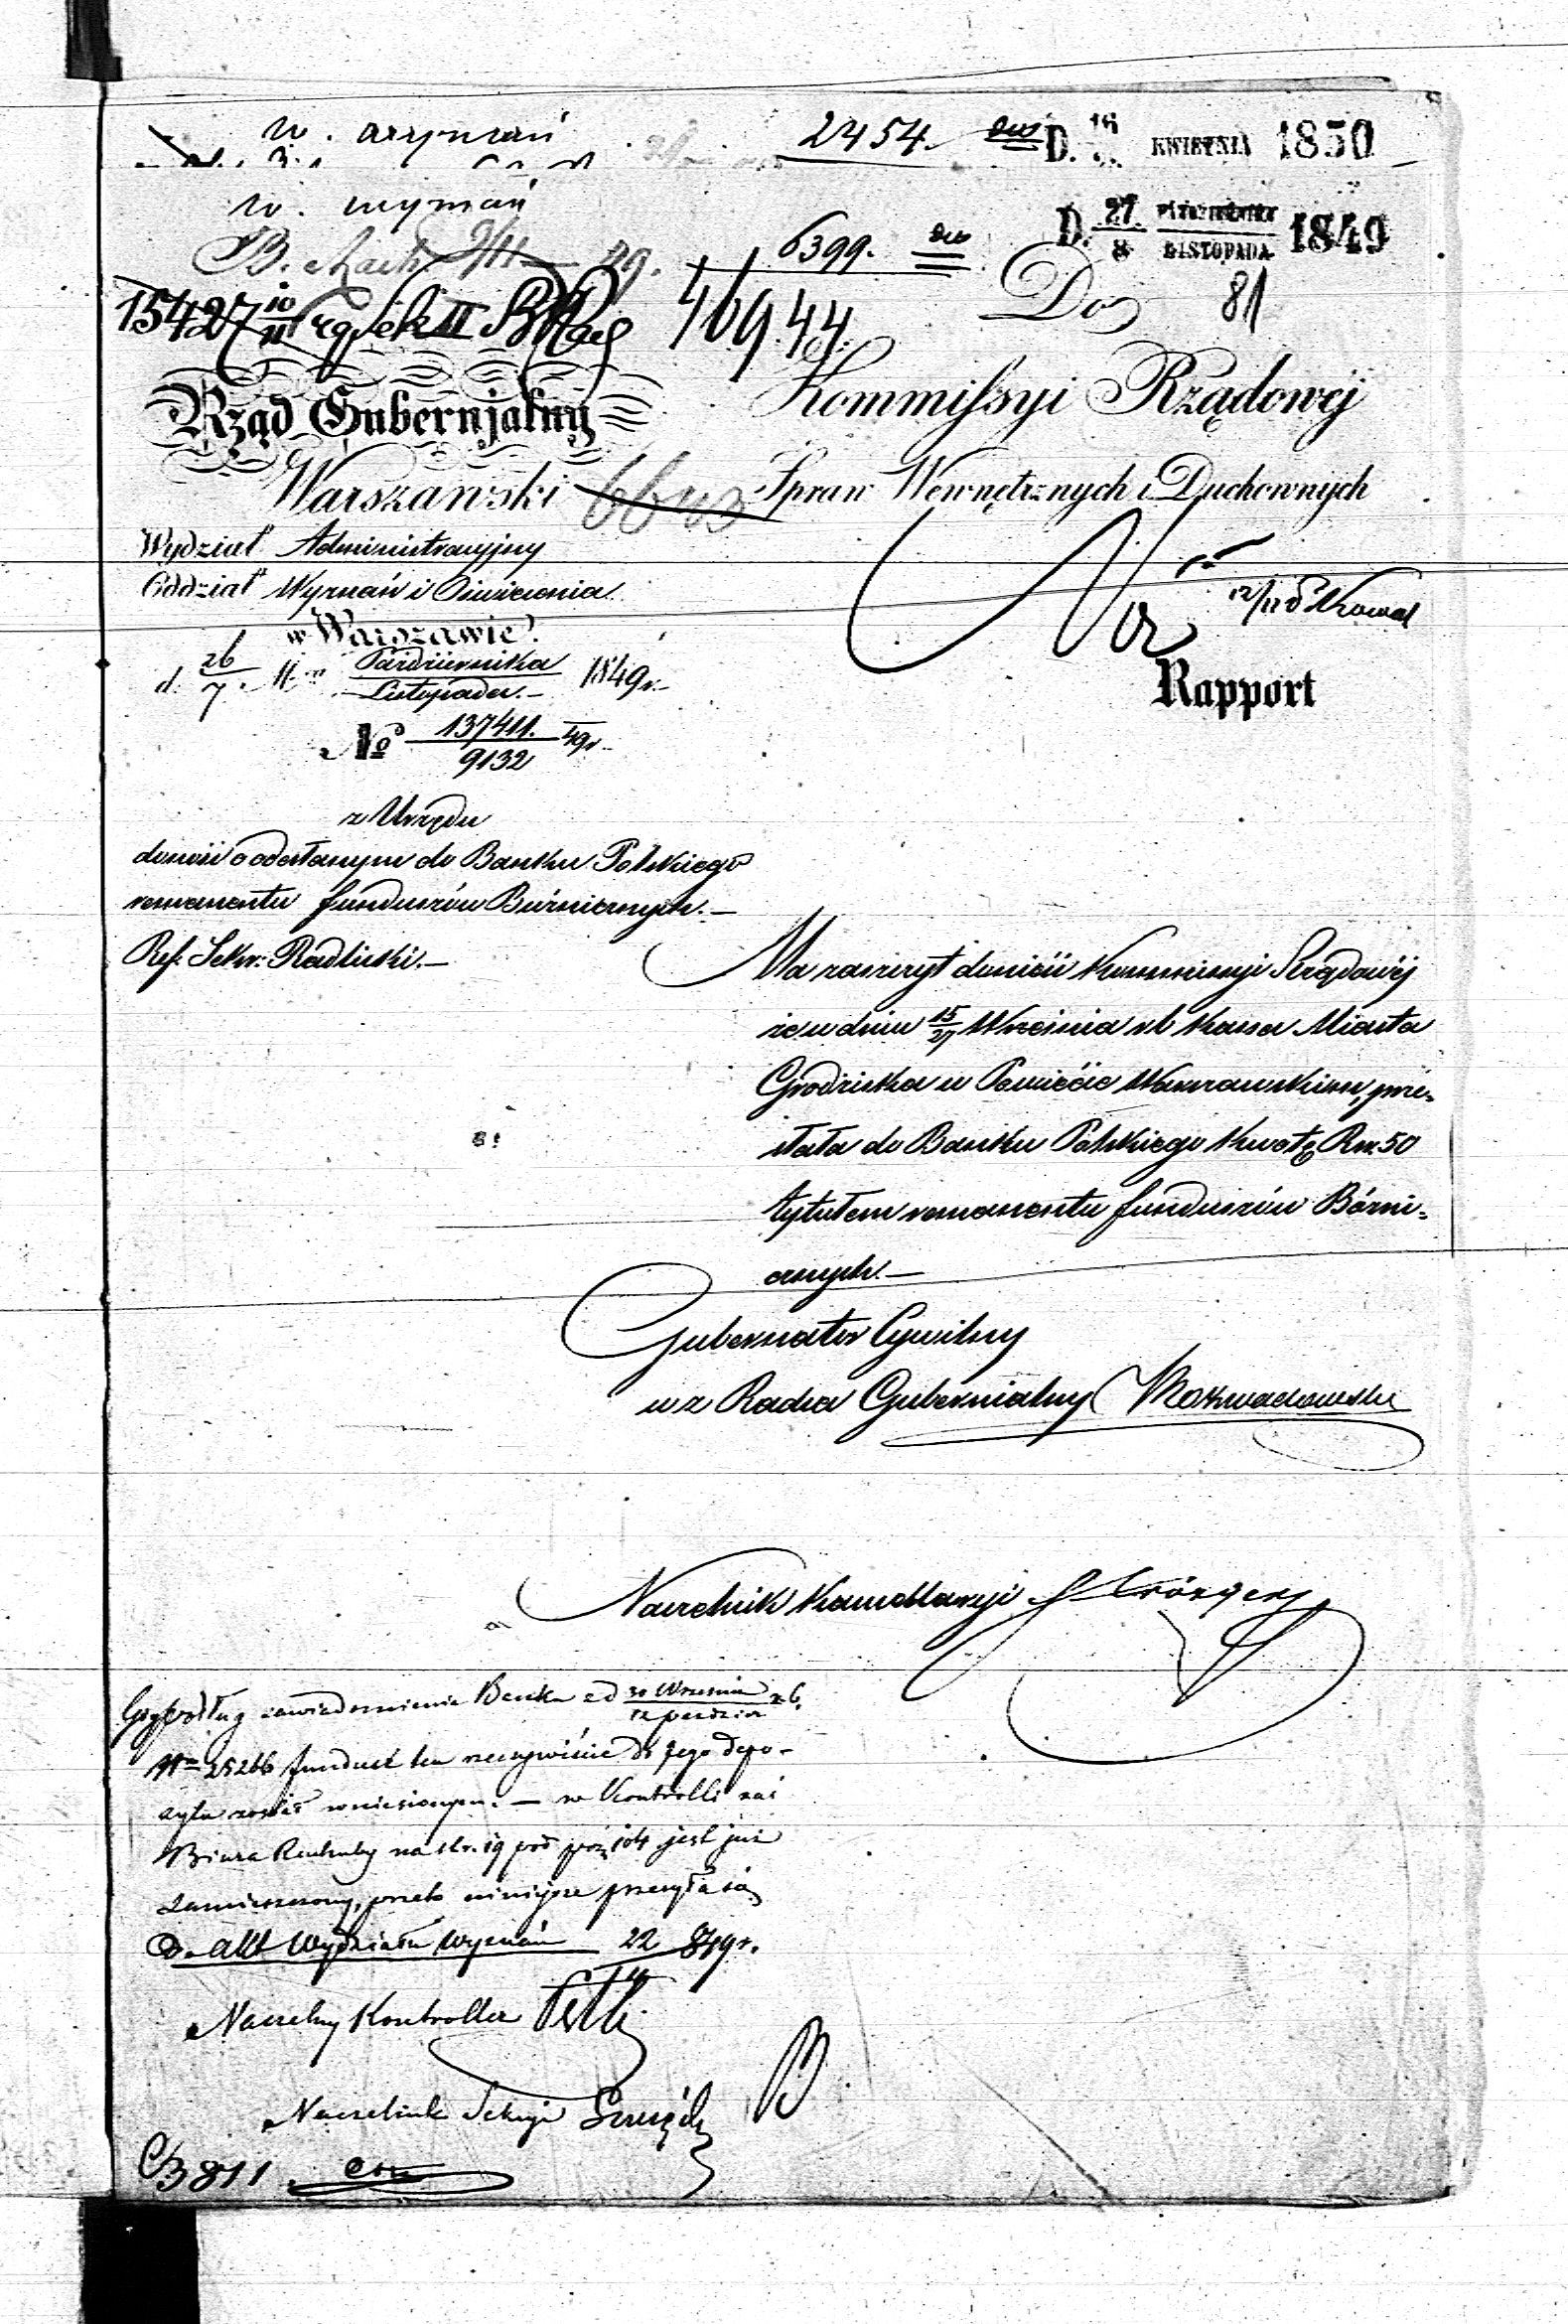 W. Wyznań 2454. D. 16 KWIETNIA 1850
W. Wyznań
6399. D. 27/8 PAŹDZIERNIKA/LISTOPADA 1849
15427 46944.
Do 81
Rząd Gubernjalny
Warszawski
Kommissyi Rządowéj
Spraw Wewnętrznych i Duchownych
Wydział Administracyjny
Oddział Wyznań i Oświecenia
w Warszawie
d. 26/7 M Października/Listopada 1849 r.
№ 137411./9132 49 r.
Rapport
z Urzędu
donosi o odesłanym do Banku Polskiego
remanentu funduszów Bóżnicznych.—
Ref: Sekr: Radlicki.—
Ma zaszczyt donieść Kommissyi Rządowéj
że w dniu 15/27 Września rb Kassa Miasta
Grodziska w Powiecie Warszawskim, prze-
słała do Banku Polskiego kwotę Rsr. 50
tytułem remanentu funduszów Bóżni-
cznych.—
Gubernator Cywilny
w z Radca Gubernialny
Naczelnik Kancellaryi
Gdy podług zawiadomienia Banku z d 30 Września/12 paździer rb.
Nr 25266 fundusz ten rzeczywiście do jego depo-
zytu został wniesionym. — w Kontrolli zaś
Biura Rachuby na str. 19 pod poz 104 jest już
zamieszczony, przeto niniejsze przesyła się
Do akt Wydziału Wyznań 22/11 849 r.
Naczelny Kontroller
Naczelnik Sekcyi
811